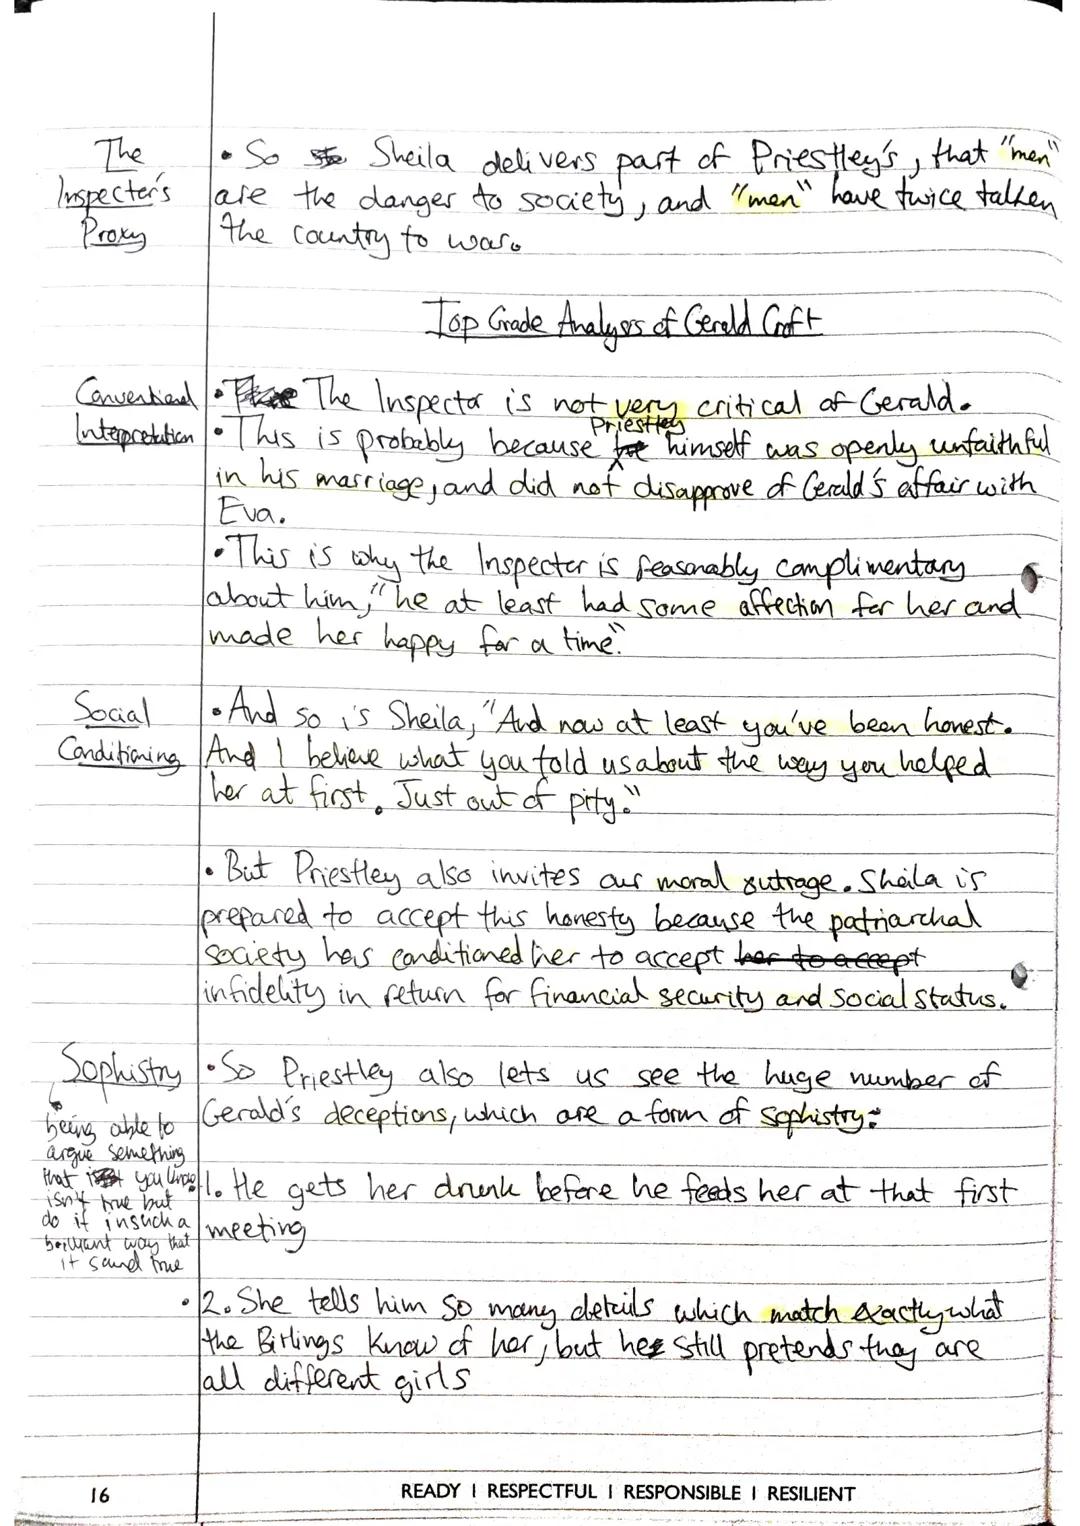 The
Inspecter's
Proxy
• So Sheila delivers part of Priestley's, that "men"
are the danger to society, and "men" have twice talken
the country to war.
Top Grade Analysis of Gerald Croft
Conventional
Interpretation
• The Inspector is not very critical of Gerald.
• This is probably because Priestley himself was openly unfaithful
in his marriage, and did not disapprove of Gerald's affair with
Eva.
• This is why the Inspecter is reasonably complimentary
about him, "he at least had some affection for her and
made her happy for a time."
Social
Conditioning
• And so is Sheila, "And now at least you've been honest.
And I believe what you told us about the way you helped
her at first. Just out of pity."
• But Priestley also invites our moral outrage. Sheila is
prepared to accept this honesty because the patriarchal
society has conditioned her to accept her to accept
infidelity in return for financial security and social status.
Sophistry
being able to
argue something
that you know
isn't true but
do it in such a
brilliant way that
it sound true
• So Priestley also lets us see the huge number of
Gerald's deceptions, which are a form of sophistry:
1. He gets her drunk before he feeds her at that first
meeting
• 2. She tells him so many details which match exactly what
the Birlings know of her, but he still pretends they are
all different girls
16
READY | RESPECTFUL | RESPONSIBLE | RESILIENT